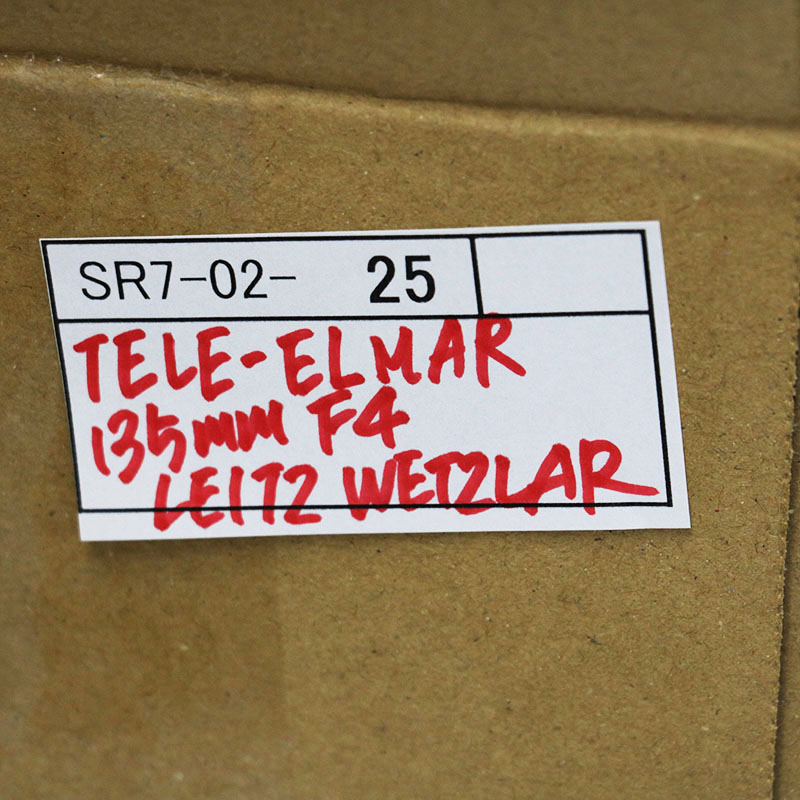 SR7-02- 25
TELE-ELMAR
135mm F4
LEITZ WETZLAR